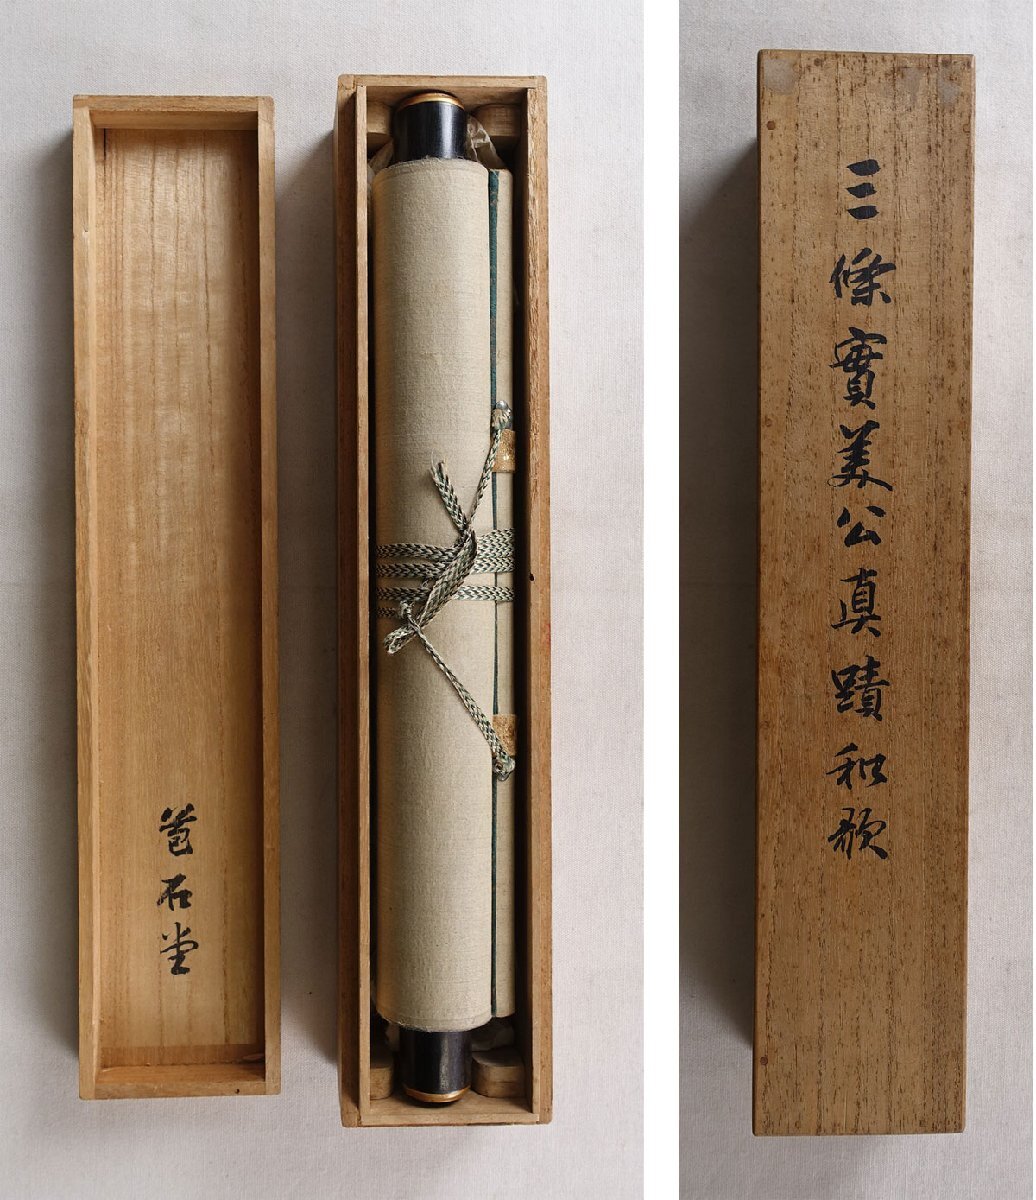 三條實美公真蹟和歌
石堂